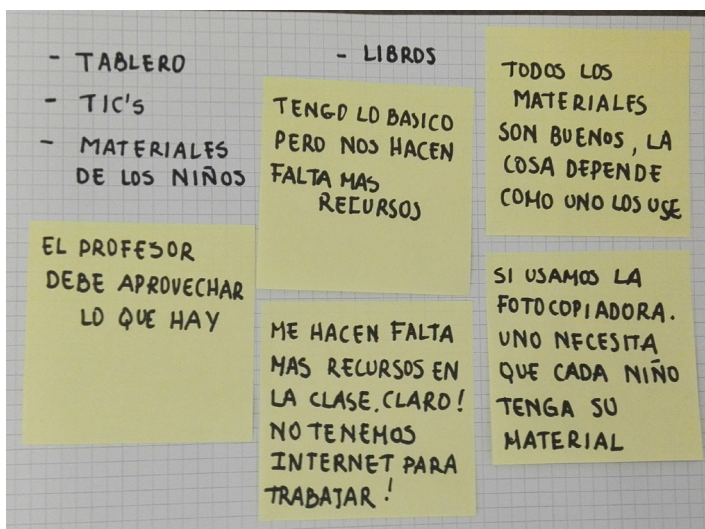 - TABLERO
- TIC's
- MATERIALES
DE LOS NIÑOS
- LIBROS
TENGO LO BASICO
PERO NOS HACEN
FALTA MAS
RECURSOS
TODOS LOS
MATERIALES
SON BUENOS, LA
COSA DEPENDE
COMO UNO LOS USE
EL PROFESOR
DEBE APROVECHAR
LO QUE HAY
ME HACEN FALTA
MAS RECURSOS EN
LA CLASE. CLARO!
NO TENEMOS
INTERNET PARA
TRABAJAR!
SI USAMOS LA
FOTOCOPIADORA.
UNO NECESITA
QUE CADA NIÑO
TENGA SU
MATERIAL